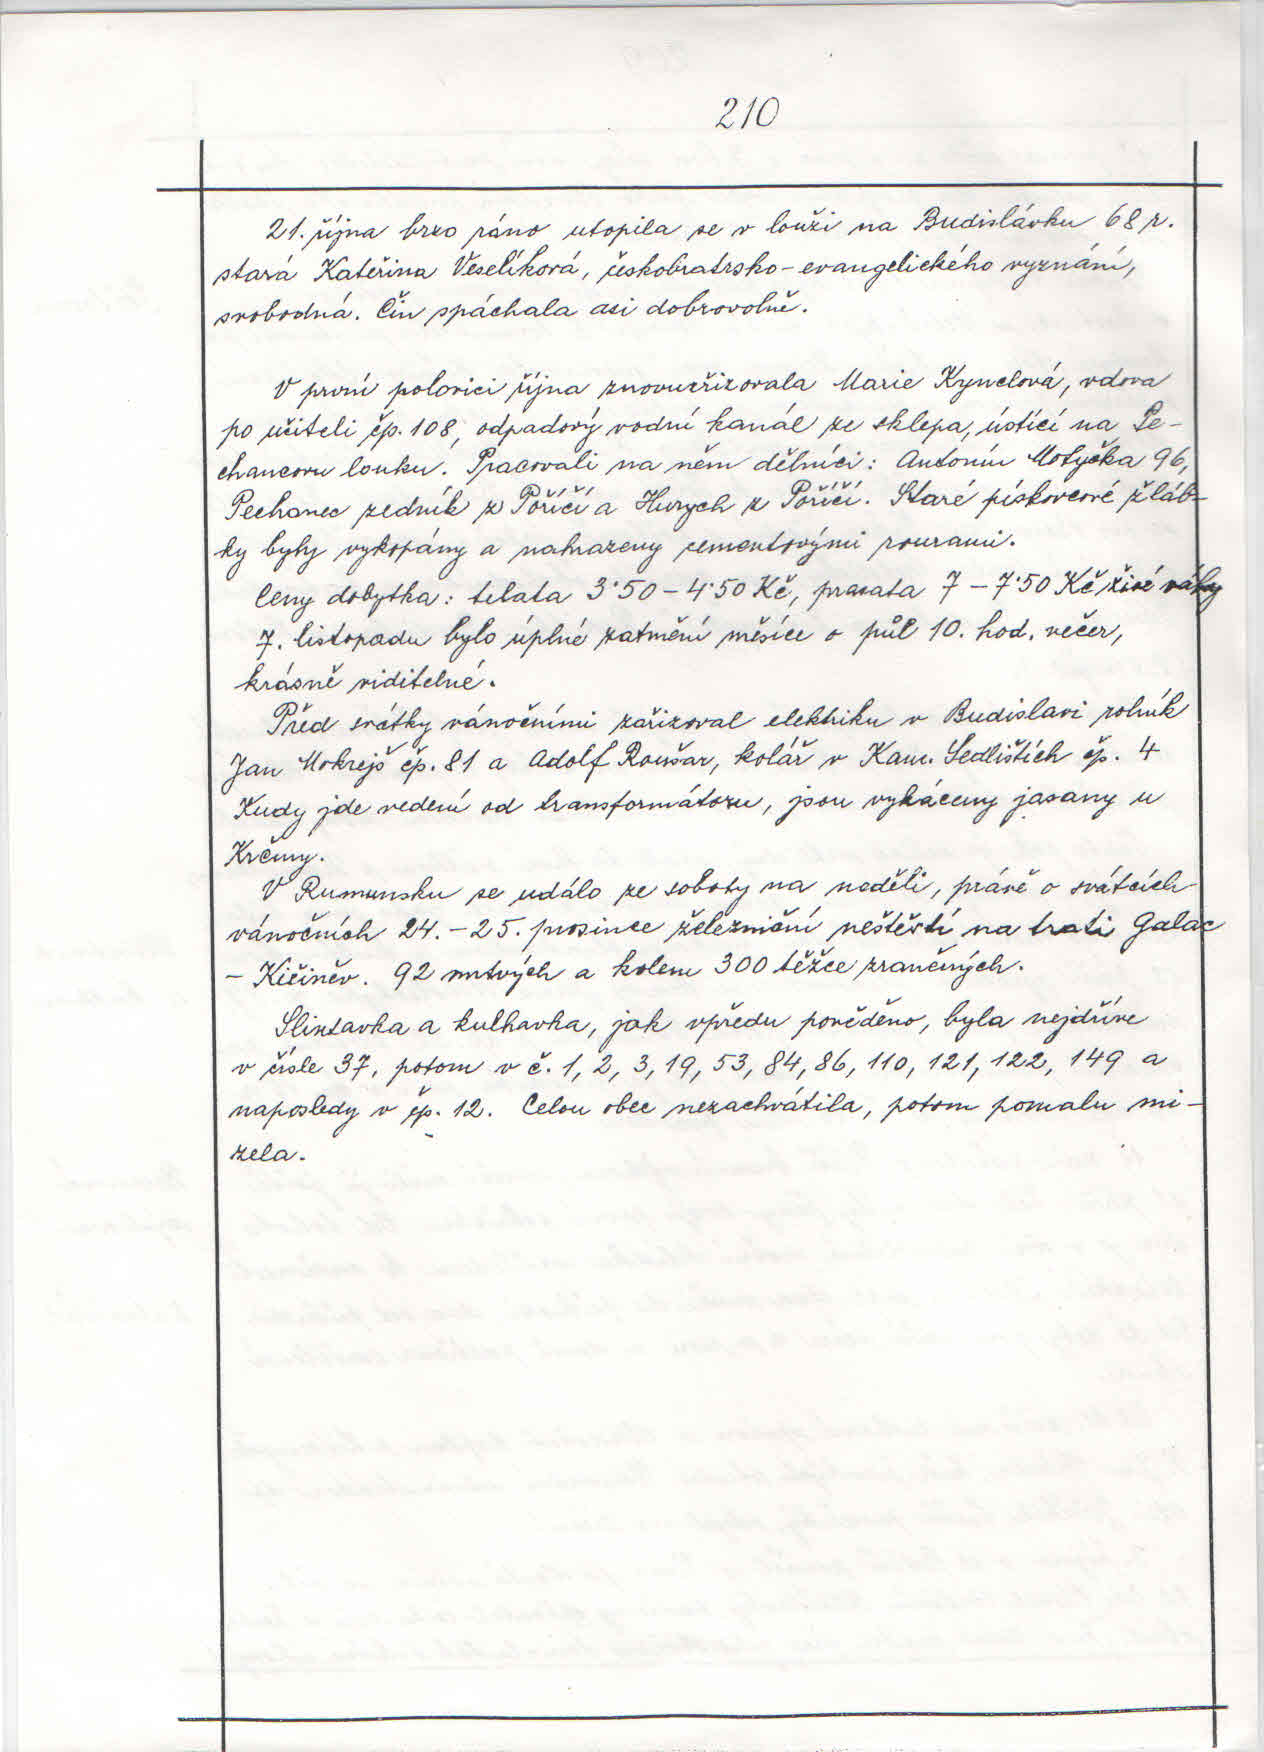 210
21. října brzo ráno utopila se v louži na Budislávku 68 r.
stará Kateřina Veselíková, českobratrsko-evangelického vyznání,
svobodná. Čin spáchala asi dobrovolně.
V první polovici října znovuzřizovala Marie Kynclová, vdova
po učiteli čp. 108, odpadový vodní kanál ze sklepa, ústící na Pe-
chancovu louku. Pracovali na něm dělníci: Antonín Motyčka 96,
Pechanec zedník z Poříčí a Hurych z Poříčí. Staré pískovcové žláb-
ky byly vykopány a nahrazeny cementovými rourami.
Ceny dobytka: telata 3˙50 – 4˙50 Kč, prasata 7 – 7˙50 Kč živé váhy
7. listopadu bylo úplné zatmění měsíce o půl 10. hod. večer,
krásně viditelné.
Před svátky vánočními zařizoval elektriku v Budislavi rolník
Jan Mokrejš čp. 81 a Adolf Roušar, kolář v Kam. Sedlištích čp. 4
Kudy jde vedení od transformátoru, jsou vykáceny jasany u
Krčmy.
V Rumunsku se událo ze soboty na neděli, právě o svátcích
vánočních 24. – 25. prosince železniční neštěstí na trati Galac
– Kičiněv. 92 mrtvých a kolem 300 těžce zraněných.
Slintavka a kulhavka, jak vpředu pověděno, byla nejdříve
v čísle 37, potom v č. 1, 2, 3, 19, 53, 84, 86, 110, 121, 122, 149 a
naposledy v čp. 12. Celou obec nezachvátila, potom pomalu mi-
zela.